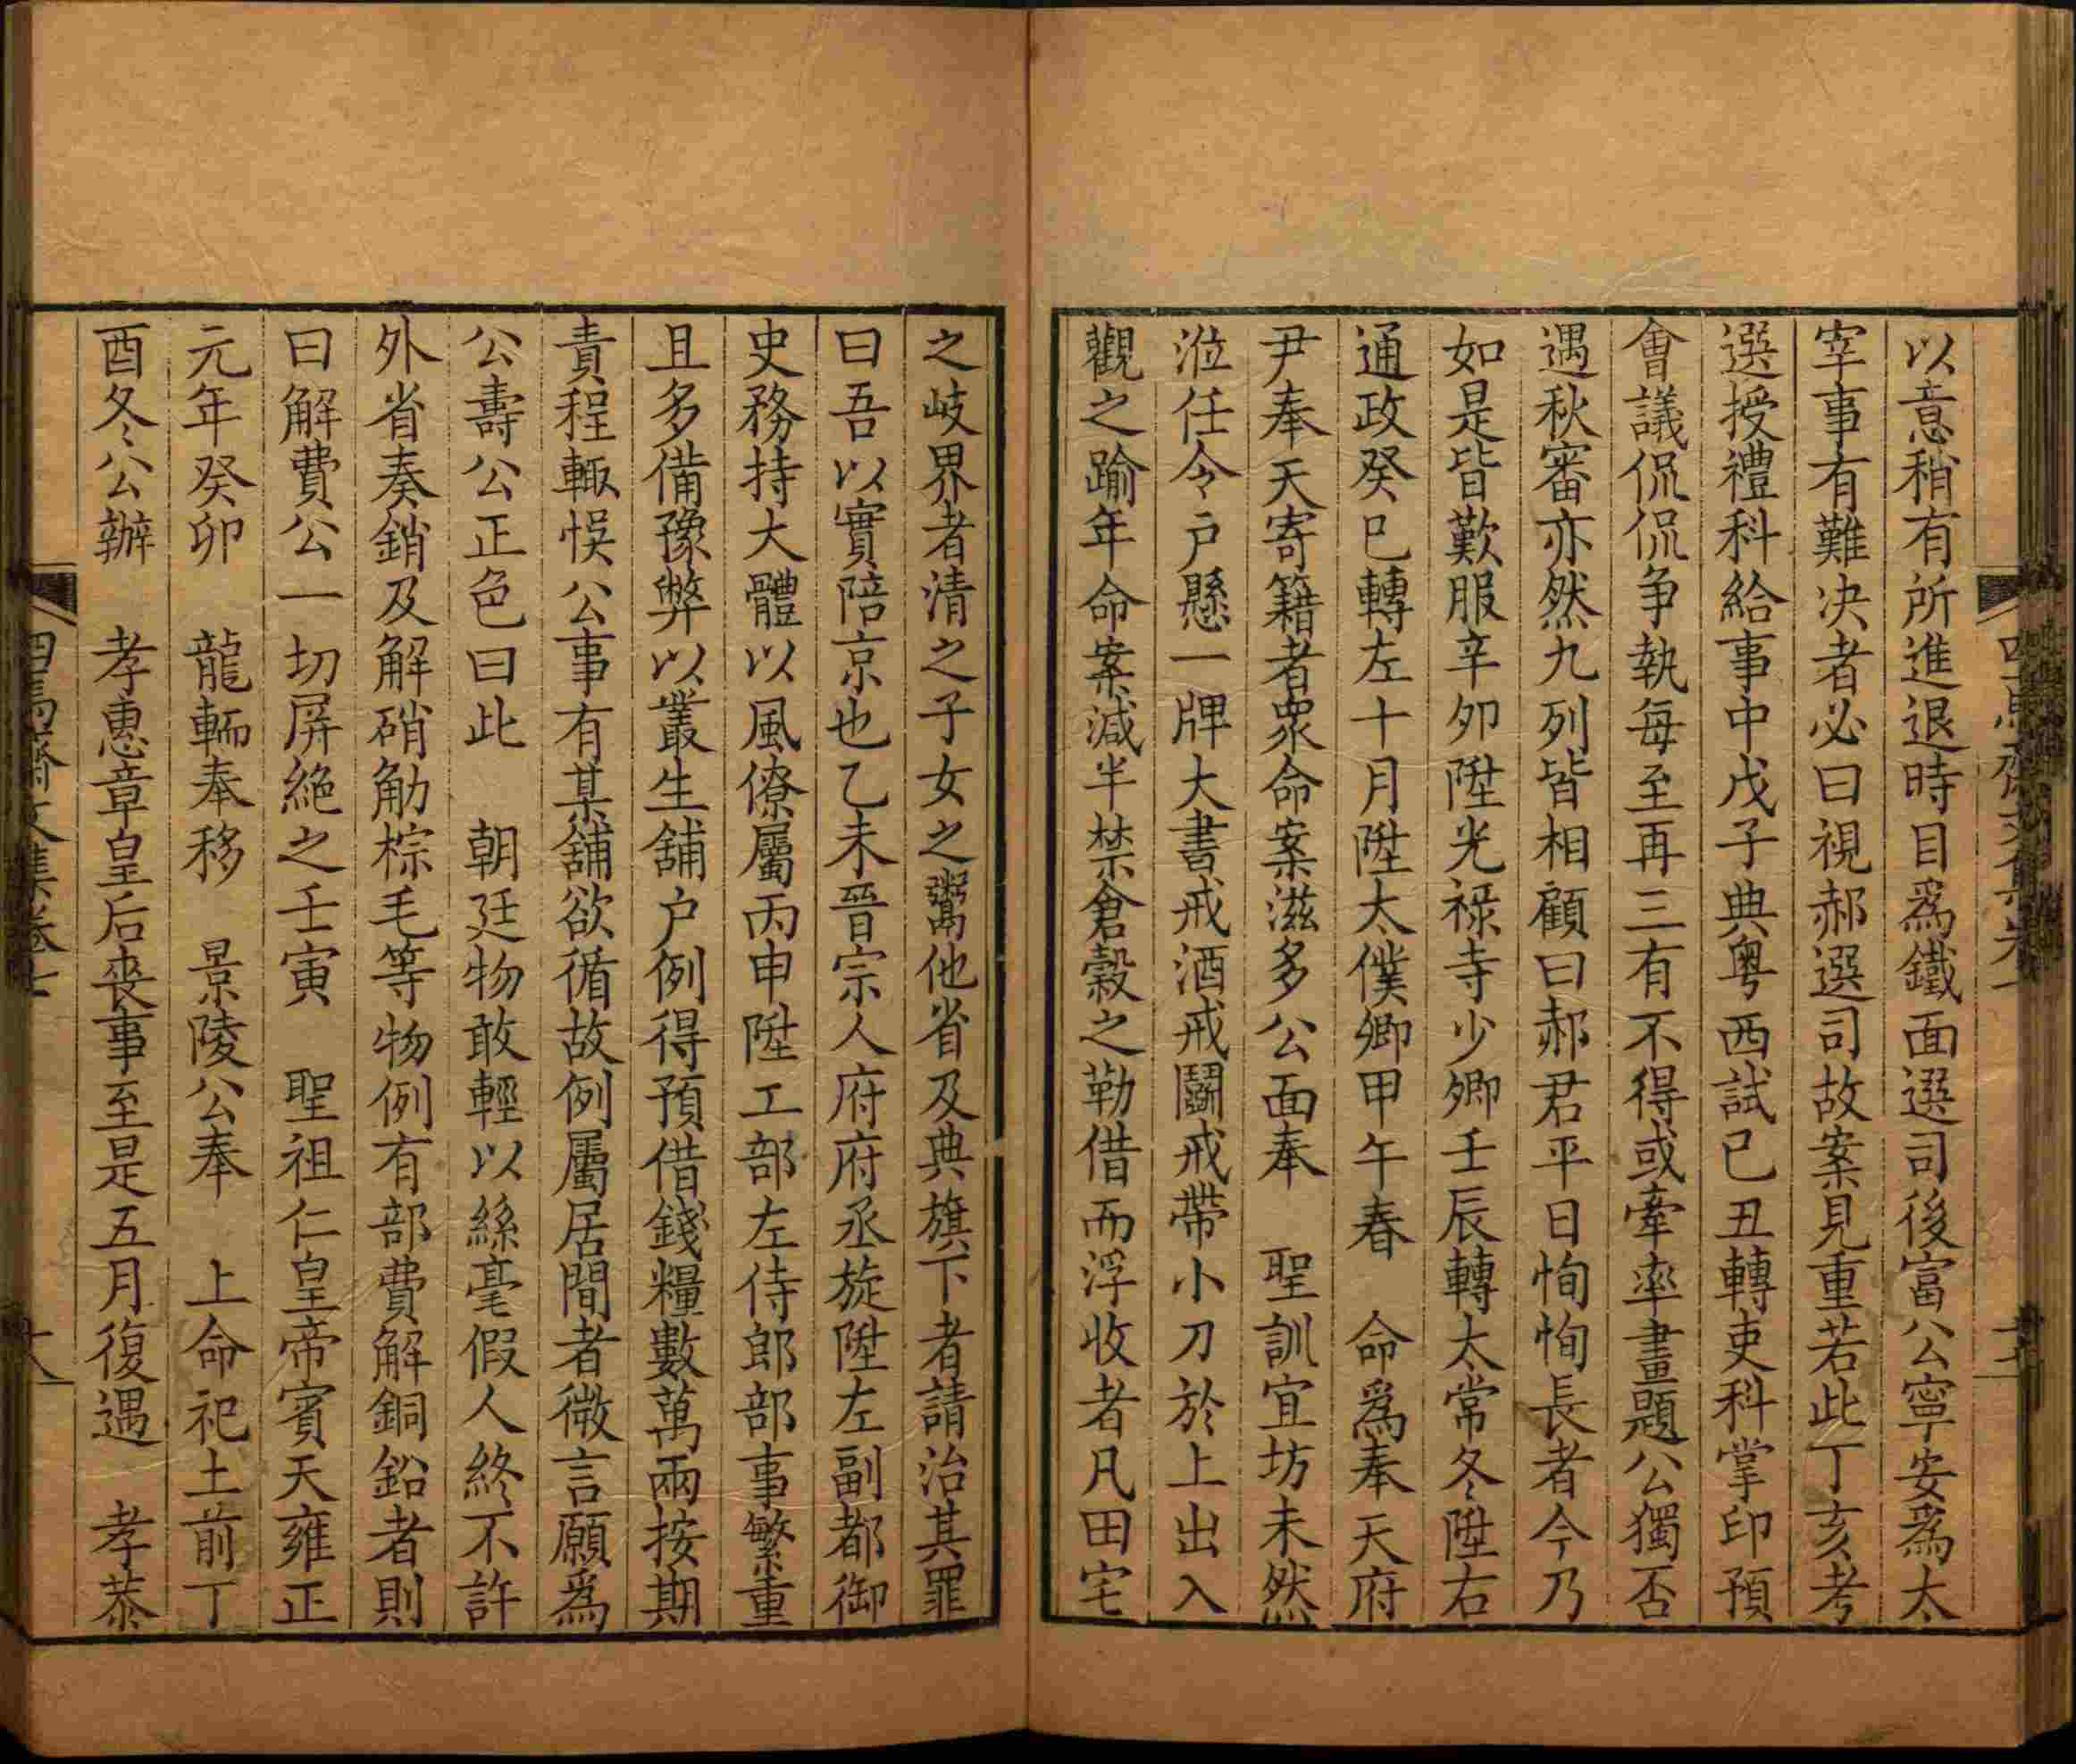 以意稍有所進退時目爲鐵面選司後富公寧安爲太
宰事有難决者必曰視郝選司故案見重若此丁亥考
選授禮科給事中戊子典粤西試已丑轉吏科掌印預
會議侃侃争執每至再三有不得或牽率畫題公獨否
遇秋審亦然九列皆相顧曰郝君平日恂恂長者今乃
如是皆歎服辛夘陞光禄寺少卿壬辰轉太常冬陞右
通政癸巳轉左十月陞太僕卿甲午春　命爲奉天府
尹奉天寄籍者衆命案滋多公面奉　聖訓宜坊未然
涖任令户懸一牌大書戒酒戒鬪戒帶小刀於上出入
觀之踰年命案減半禁倉榖之勒借而浮收者凡田宅
之岐界者清之子女之鬻他省及典旗下者請治其罪
曰吾以實陪京也乙未晉宗人府府丞旋陞左副都御
史務持大體以風僚屬丙申陞工部左侍郎部事繁重
且多備豫弊以叢生舖户例得預借錢糧數萬兩按期
責程輙悞公事有某舖欲循故例屬居間者微言願爲
公壽公正色曰此　朝廷物敢輕以絲毫假人終不許
外省奏銷及解硝觔棕毛等物例有部費解銅鉛者則
曰解費公一切屏絶之壬寅　聖祖仁皇帝賓天雍正
元年癸卯　龍輀奉移　景陵公奉　上命祀土前丁
酉冬公辦　孝惠章皇后喪事至是五月復遇　孝恭
四焉齋文集卷七
十八